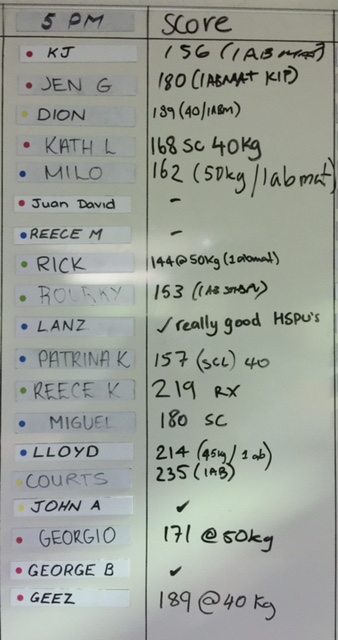 5 PM Score
KJ 156 (1ABMAT)
JEN G 180 (1ABMAT KIP)
DION 139 (40/1ABM)
KATH L 168 SC 40Kg
MILO 162 (50kg/1abmat)
Juan David -
REECE M -
RICK 144@50Kg (1abmat)
153
LANZ ✓ really good HSPU's
PATRINA K 157 (SCL) 40
REECE K 219 RX
MIGUEL 180 SC
LLOYD 214 (45kg/1ab)
COURTS 235 (1AB)
JOHN A ✓
GEORGIO 171 @ 50kg
GEORGE B ✓
GEEZ 189 @ 40 Kg